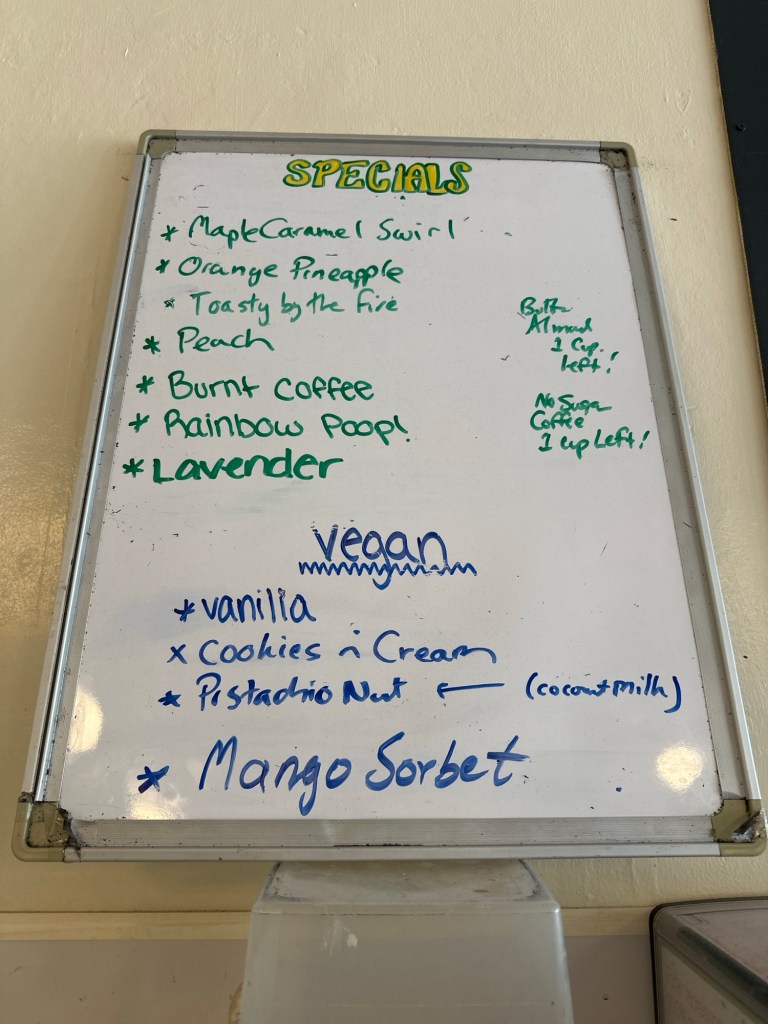 SPECIALS
* Maple Caramel Swirl
* Orange Pineapple
* Toasty by the Fire
* Peach
* Burnt Coffee
* Rainbow Poop!
* Lavender
Almond
1 Cup
left!
No Sugar
Coffee
1 cup Left!
vegan
* vanilla
x Cookies n Cream
* Pistachio Nut ← (coconut milk)
* Mango Sorbet